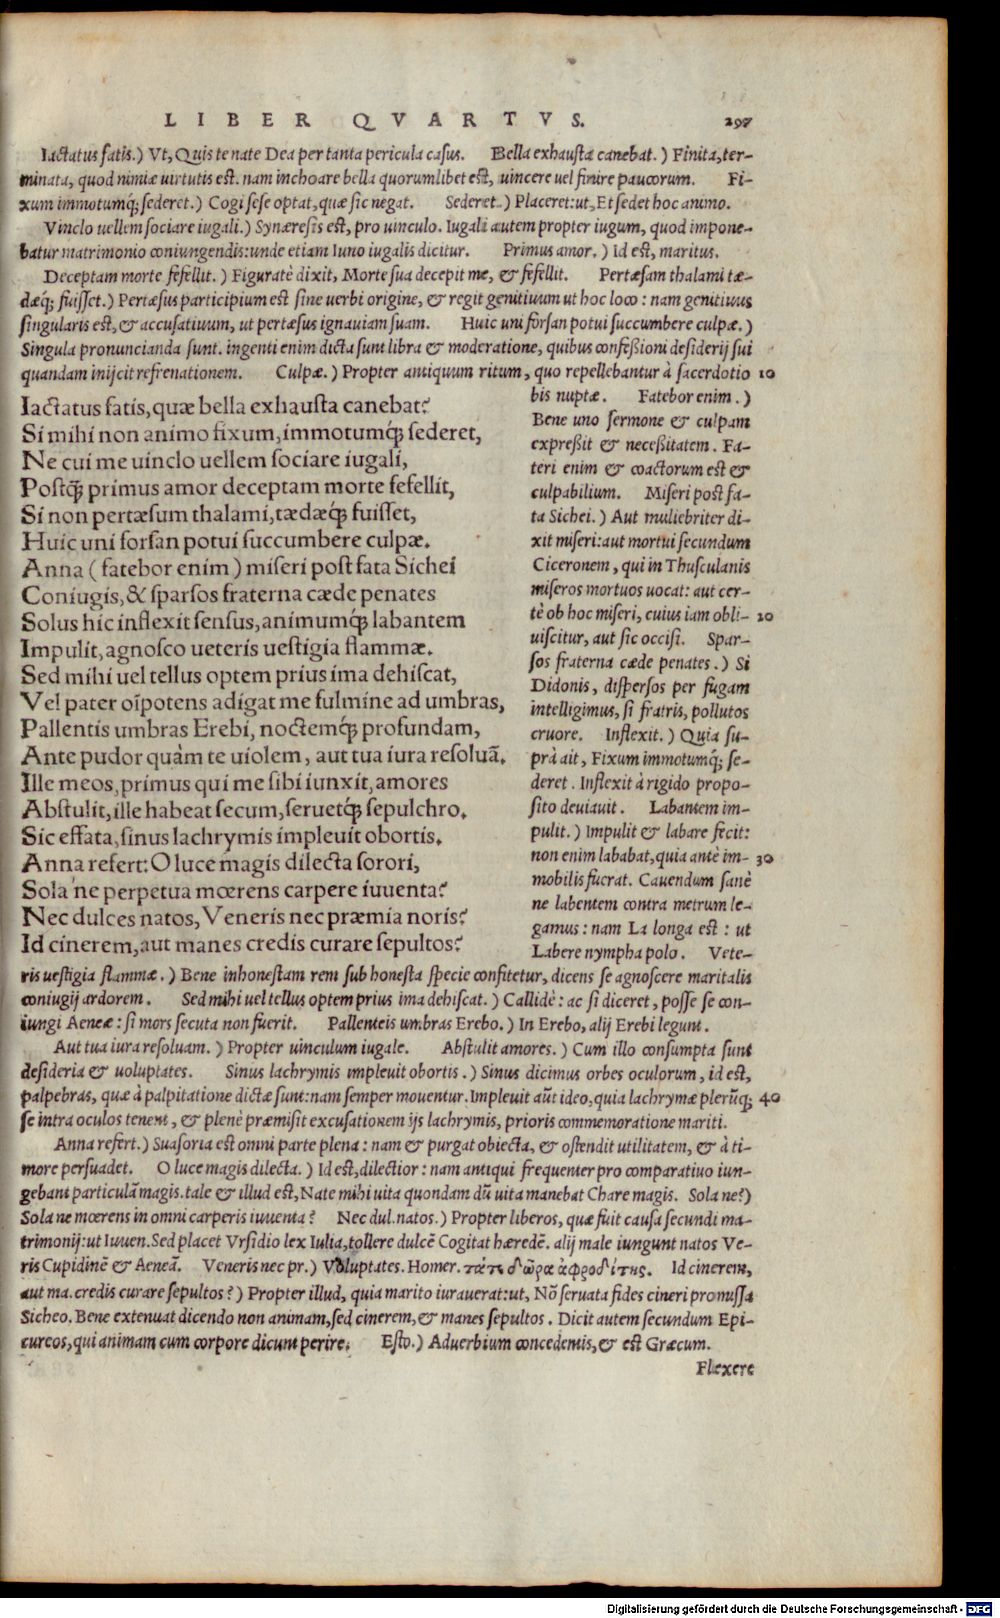 LIBER QVARTVS. 297
Iactatus fatis.) Vt, Quis te nate Dea per tanta pericula casus. Bella exhausta canebat.) Finita, ter-
minata, quod nimiæ uirtutis est. nam inchoare bella quorumlibet est, uincere uel finire paucorum. Fi-
xum immotumq́; sederet.) Cogi sese optat, quæ sic negat. Sederet.) Placeret: ut, Et sedet hoc animo.
Vinclo uellem sociare iugali.) Synæresis est, pro uinculo. Iugali autem propter iugum, quod impone-
batur matrimonio coniungendis: unde etiam Iuno iugalis dicitur. Primus amor.) Id est, maritus.
Deceptam morte fefellit.) Figuratè dixit, Morte sua decepit me, & fefellit. Pertæsam thalami tæ-
dæq́; fuisset.) Pertæsus participium est sine uerbi origine, & regit genitiuum ut hoc loco: nam genitiuus
singularis est, & accusatiuum, ut pertæsus ignauiam suam. Huic uni forsan potui succumbere culpæ.)
Singula pronuncianda sunt. ingenti enim dicta sunt libra & moderatione, quibus confeßioni desiderij sui
quandam inijcit refrenationem. Culpæ.) Propter antiquum ritum, quo repellebantur à sacerdotio 10
Iactatus fatis, quæ bella exhausta canebat?
Si mihi non animo fixum, immotumq́; sederet,
Ne cui me uinclo uellem sociare iugali,
Postq̃ primus amor deceptam morte fefellit,
Si non pertæsum thalami, tædæq́; fuisset,
Huic uni forsan potui succumbere culpæ.
Anna (fatebor enim) miseri post fata Sichei
Coniugis, & sparsos fraterna cæde penates
Solus hic inflexit sensus, animumq́; labantem
Impulit, agnosco ueteris uestigia flammæ.
Sed mihi uel tellus optem prius ima dehiscat,
Vel pater oĩpotens adigat me fulmine ad umbras,
Pallentis umbras Erebi, noctemq́; profundam,
Ante pudor quàm te uiolem, aut tua iura resoluã.
Ille meos, primus qui me sibi iunxit, amores
Abstulit, ille habeat secum, seruetq́; sepulchro.
Sic effata, sinus lachrymis impleuit obortis.
Anna refert: O luce magis dilecta sorori,
Sola'ne perpetua mœrens carpere iuuenta?
Nec dulces natos, Veneris nec præmia noris?
Id cinerem, aut manes credis curare sepultos?
bis nuptæ. Fatebor enim.)
Bene uno sermone & culpam
expreßit & neceßitatem. Fa-
teri enim & coactorum est &
culpabilium. Miseri post fa-
ta Sichei.) Aut muliebriter di-
xit miseri: aut mortui secundum
Ciceronem, qui in Thusculanis
miseros mortuos uocat: aut cer-
tè ob hoc miseri, cuius iam obli- 20
uiscitur, aut sic occisi. Spar-
sos fraterna cæde penates.) Si
Didonis, dispersos per fugam
intelligimus, si fratris, pollutos
cruore. Inflexit.) Quia su-
prà ait, Fixum immotumq́; se-
deret. Inflexit à rigido propo-
sito deuiauit. Labantem im-
pulit.) Impulit & labare fecit:
non enim lababat, quia antè im- 30
mobilis fuerat. Cauendum sanè
ne labentem contra metrum le-
gamus: nam La longa est: ut
Labere nympha polo. Vete-
ris uestigia flammæ.) Bene inhonestam rem sub honesta specie confitetur, dicens se agnoscere maritalis
coniugij ardorem. Sed mihi uel tellus optem prius ima dehiscat.) Callidè: ac si diceret, posse se con-
iungi Aeneæ: si mors secuta non fuerit. Pallenteis umbras Erebo.) In Erebo, alij Erebi legunt.
Aut tua iura resoluam.) Propter uinculum iugale. Abstulit amores.) Cum illo consumpta sunt
desideria & uoluptates. Sinus lachrymis impleuit obortis.) Sinus dicimus orbes oculorum, id est,
palpebras, quæ à palpitatione dictæ sunt: nam semper mouentur. Impleuit aũt ideo, quia lachrymæ plerũq; 40
se intra oculos tenent, & plenè præmisit excusationem ijs lachrymis, prioris commemoratione mariti.
Anna refert.) Suasoria est omni parte plena: nam & purgat obiecta, & ostendit utilitatem, & à ti-
more persuadet. O luce magis dilecta.) Id est, dilectior: nam antiqui frequenter pro comparatiuo iun-
gebant particulã magis. tale & illud est, Nate mihi uita quondam dũ uita manebat Chare magis. Sola ne?)
Sola ne mœrens in omni carperis iuuenta? Nec dul. natos.) Propter liberos, quæ fuit causa secundi ma-
trimonij: ut Iuuen. Sed placet Vrsidio lex Iulia, tollere dulcẽ Cogitat hæredẽ. alij male iungunt natos Ve-
ris Cupidinẽ & Aeneã. Veneris nec pr.) Voluptates. Homer. τάτι δῶρα ἀφροδίτης. Id cinerem,
aut ma. credis curare sepultos?) Propter illud, quia marito iurauerat: ut, Nõ seruata fides cineri promissa
Sicheo. Bene extenuat dicendo non animam, sed cinerem, & manes sepultos. Dicit autem secundum Epi-
cureos, qui animam cum corpore dicunt perire. Esto.) Aduerbium concedentis, & est Græcum.
Flexere
Digitalisierung gefördert durch die Deutsche Forschungsgemeinschaft - DFG